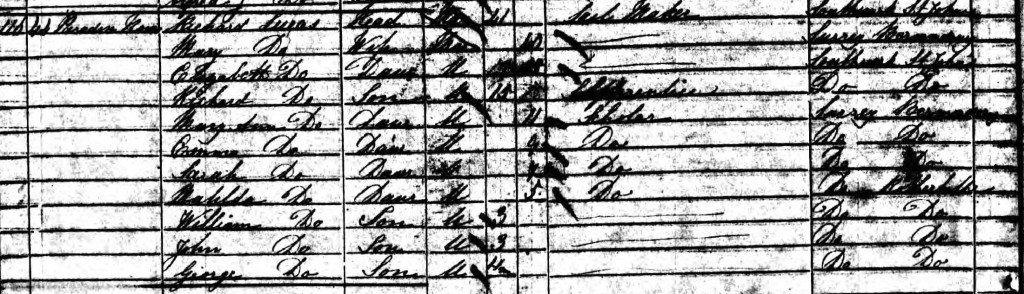 Richard Lucas Head 41 Maker Southwark St Johns
Mary Do Wife 40 Surrey Bermondsey
Elizabeth Do Daur U Southwark St Johns
Richard Do Son U 15 Apprentice Do Do
Mary Ann Do Daur U 11 Scholar Surrey Bermondsey
Emma Do Daur U 9 Do Do Do
Sarah Do Daur U 7 Do Do Do
Matilda Do Daur U 5 Do Do Rotherhithe
William Do Son U 3 Do Do
John Do Son U 3 Do Do
George Do Son U Do Do